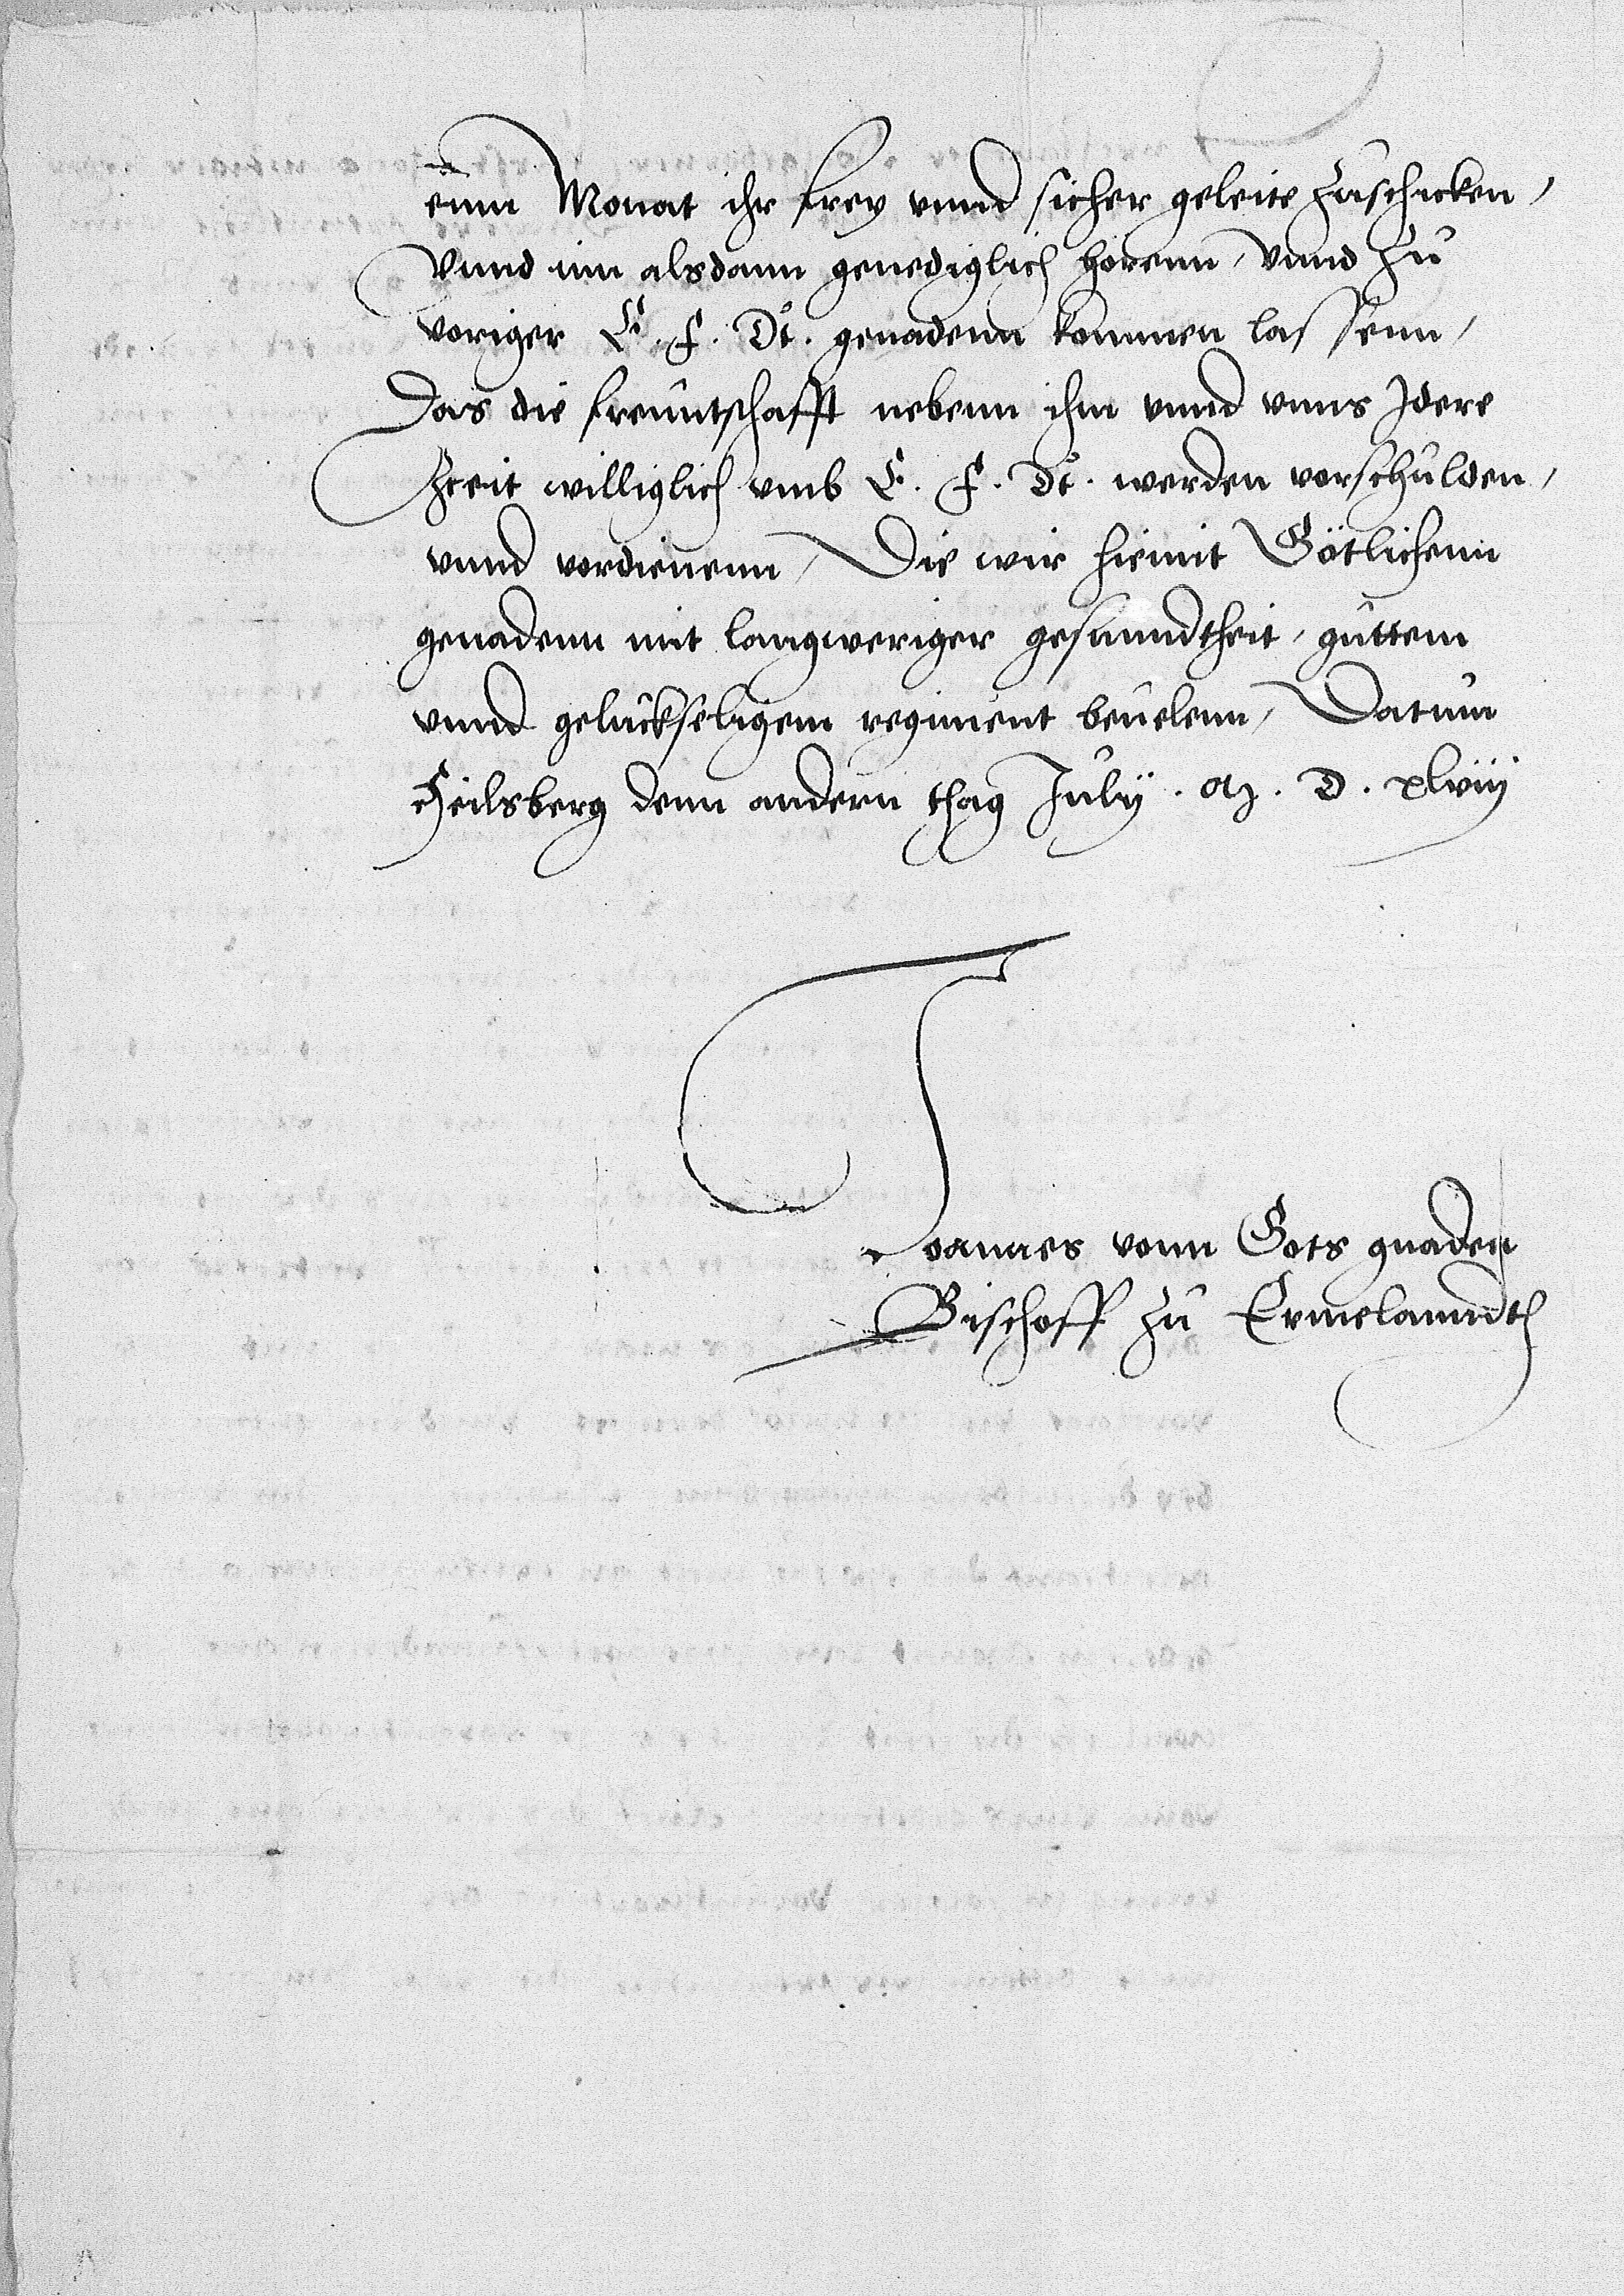 einn Monat ihr frey vnnd sicher geleite zuschicken,
Vnnd inn alsdann genediglich horenn, Vnnd zu
voriger E. F. Dt. genadenn kommen lassenn,
Das die freuntschafft nebenn ihm vnnd vnns Idere
Zceit williglich vmb E. F. Dt. werden vorschulden,
vnnd vordienenn, Die wir hiemit Götlichenn
genadenn mit langweriger gesunndtheit, guttem
vnnd geluckseligem regiment beuelenn, Datum
Heilsberg denn andern thag July. M. D. xlviij
Joannes vonn Gots gnaden
Bischoff zu Ermelanndth